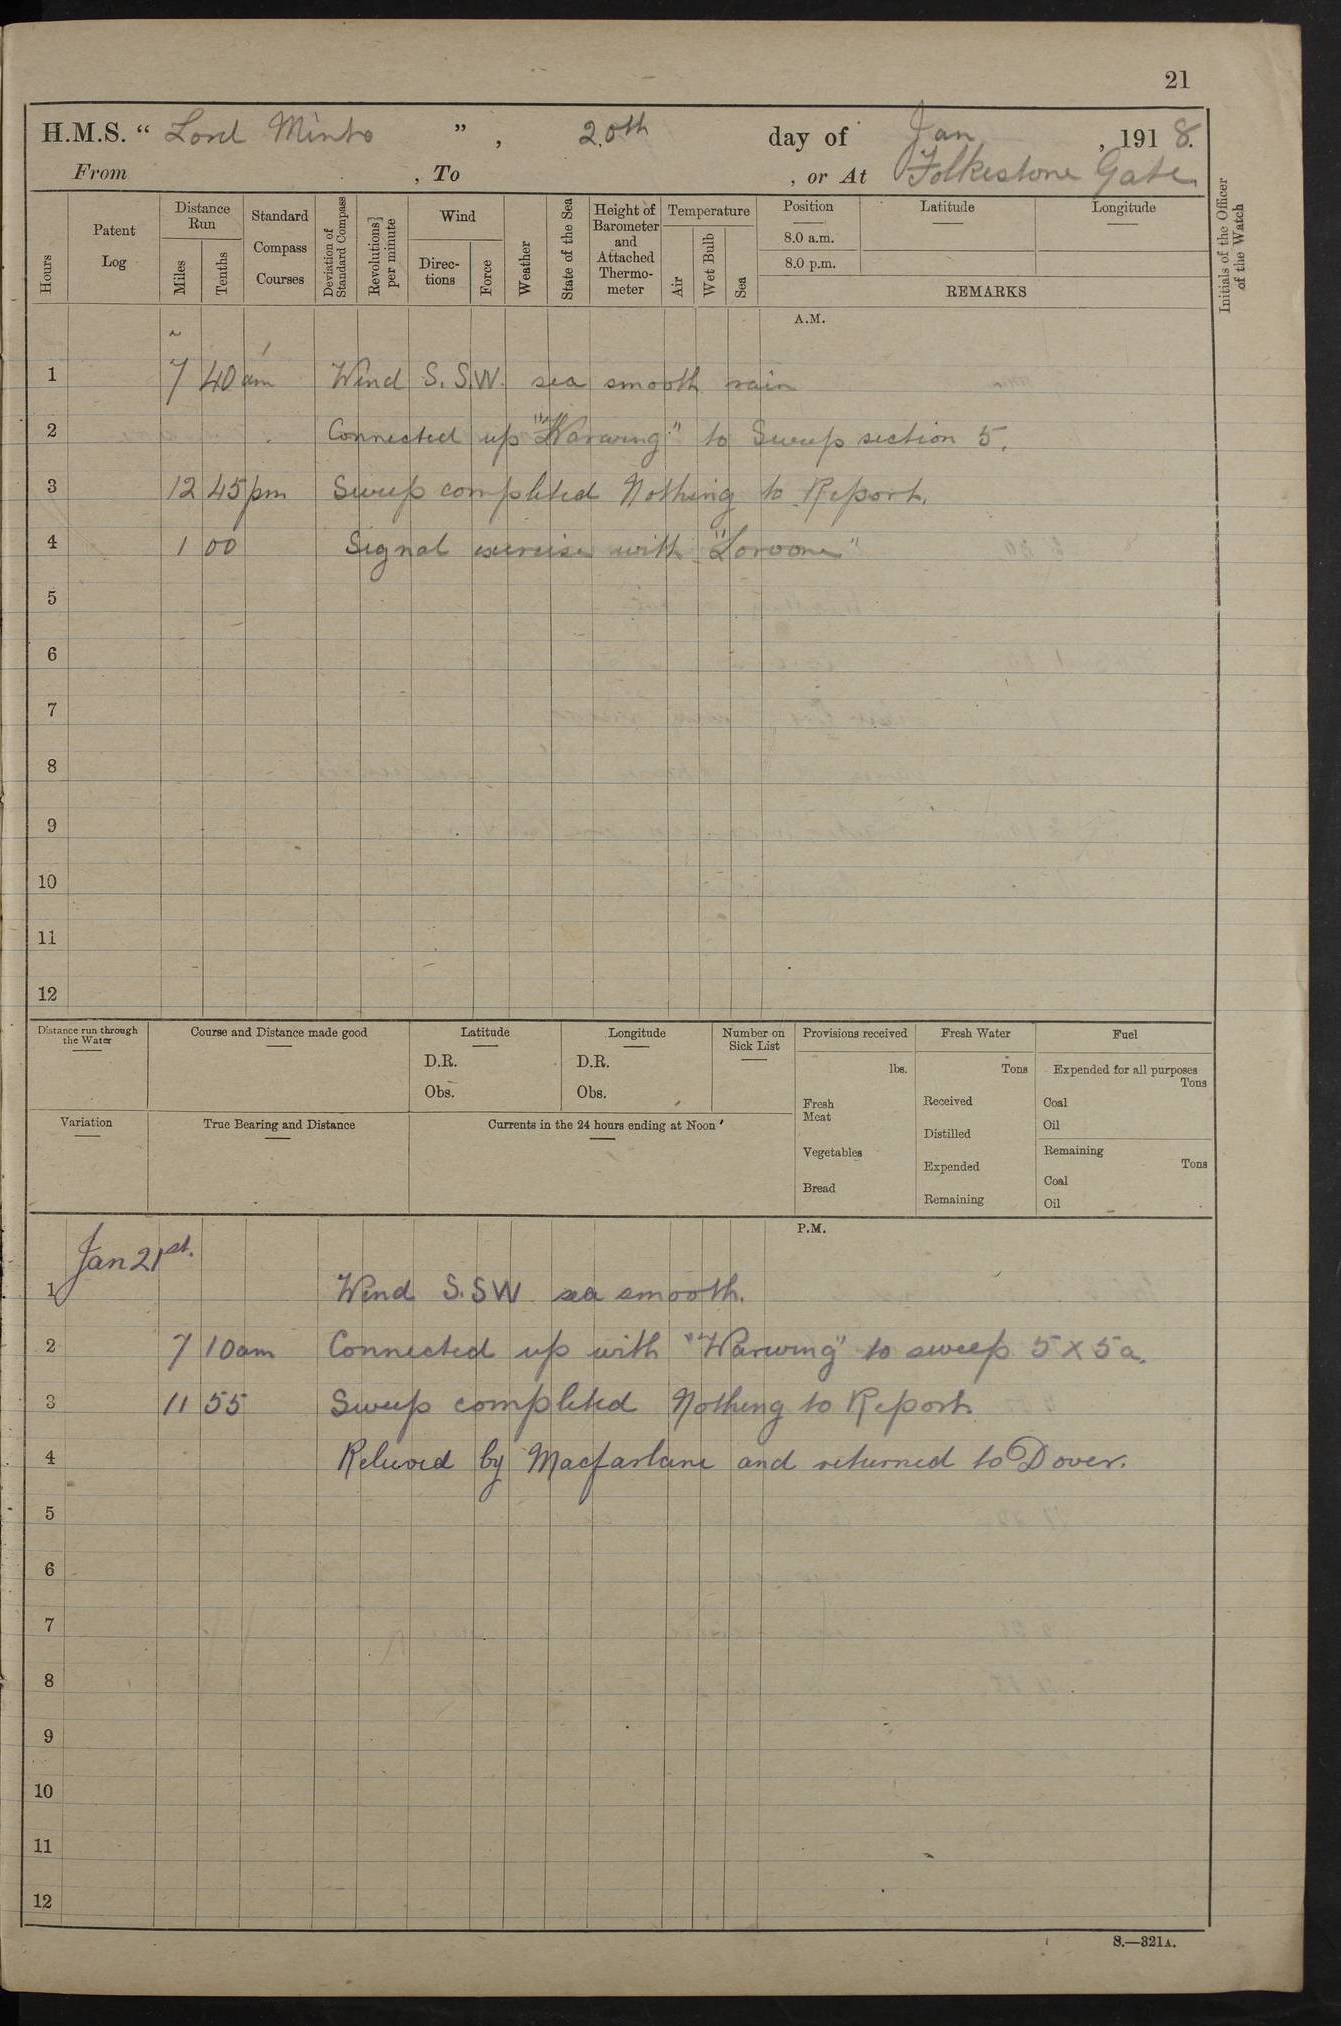 21
H.M.S. “ Lord Minto ” , 20th day of Jan , 1918.
From , To , or At Folkestone Gate.
Hours
Patent Log
Distance Run
Miles
Tenths
Standard Compass Courses
Deviation of Standard Compass
Revolutions per minute
Wind
Directions
Force
Weather
State of the Sea
Height of Barometer and Attached Thermometer
Temperature
Air
Wet Bulb
Sea
Position
8.0 a.m.
8.0 p.m.
Latitude
Longitude
REMARKS
Initials of the Officer of the Watch
A.M.
1 7 40 am Wind S.S.W. sea smooth rain
2 Connected up "Warwing" to Sweep section 5.
3 12 45 pm Sweep completed Nothing to Report.
4 1 00 Signal exercise with "Loroone"
5
6
7
8
9
10
11
12
Distance run through the Water
Course and Distance made good
Latitude
D.R.
Obs.
Longitude
D.R.
Obs.
Number on Sick List
Provisions received
lbs.
Fresh Meat
Vegetables
Bread
Fresh Water
Tons
Received
Distilled
Expended
Remaining
Fuel
Expended for all purposes
Tons
Coal
Oil
Remaining
Tons
Coal
Oil
Variation
True Bearing and Distance
Currents in the 24 hours ending at Noon
P.M.
Jan 21st.
1 Wind S.SW sea smooth.
2 7 10am Connected up with "Warwing" to sweep 5 x 5a.
3 11 55 Sweep completed Nothing to Report
4 Relieved by Macfarlane and returned to Dover.
5
6
7
8
9
10
11
12
S.—321A.